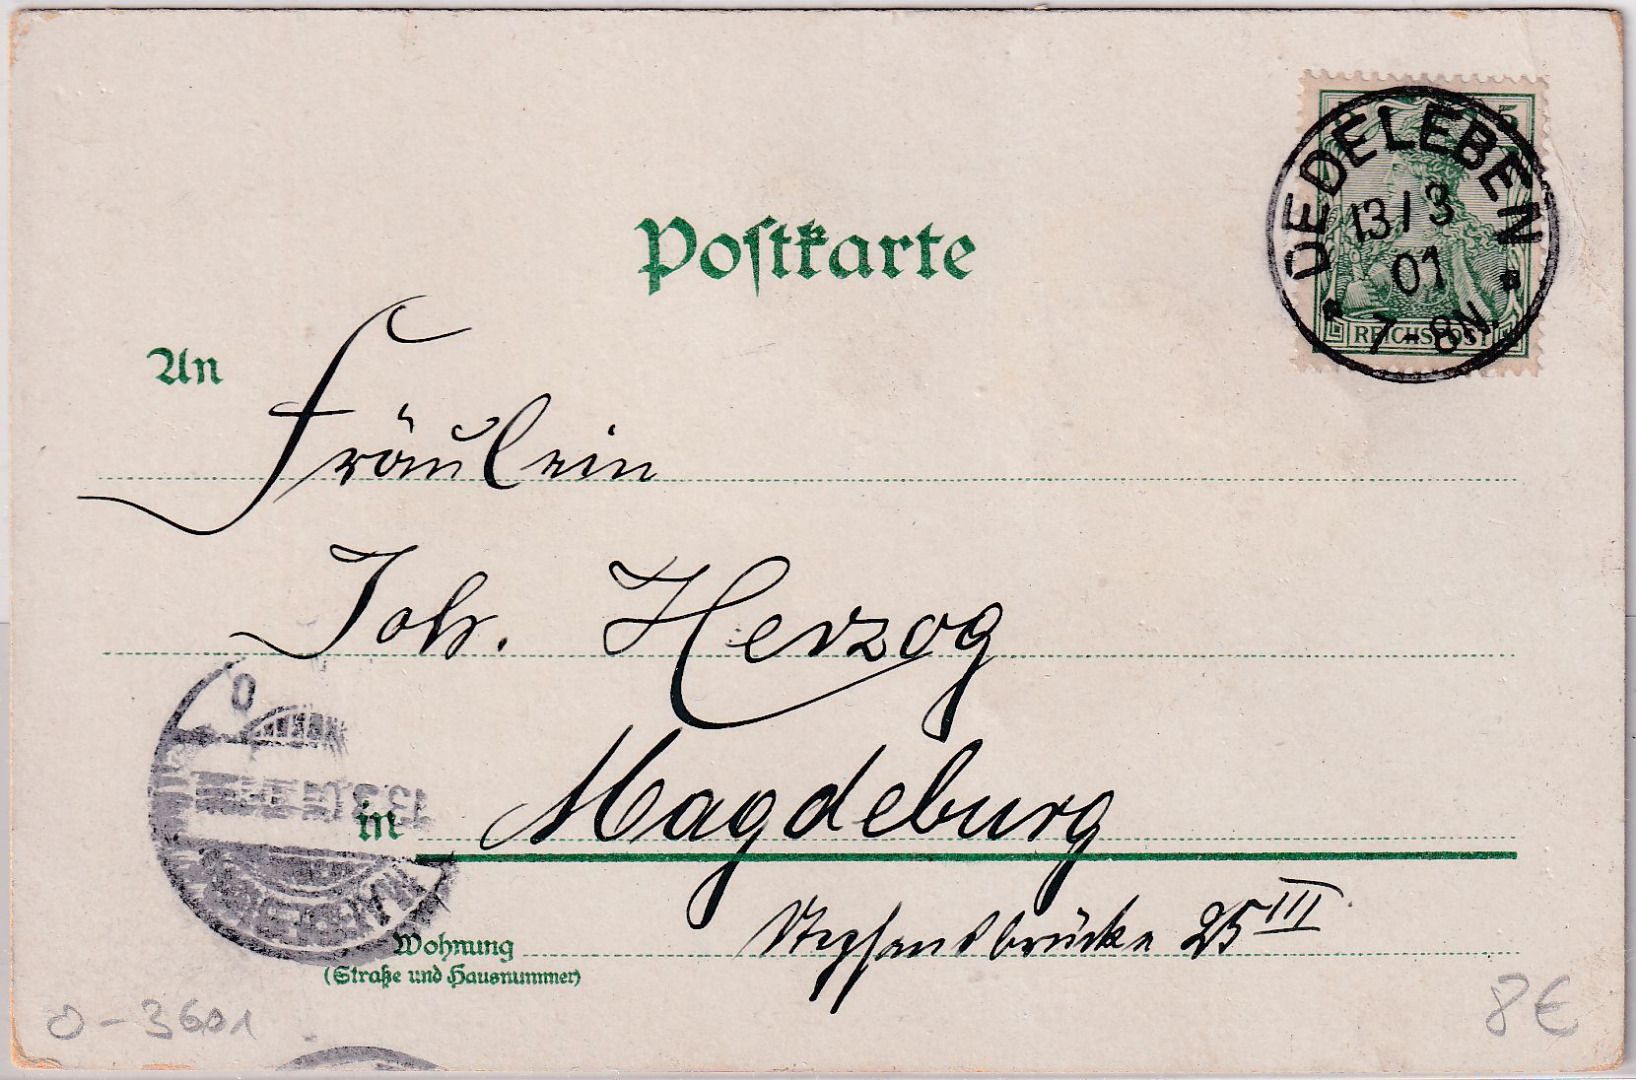 Postkarte
5
DEDELEBEN
13/3
01
7-8N.
REICHSPOST
An
Fräulein
Joh. Herzog
in Magdeburg
13.3.
Wohnung
(Straße und Hausnummer)
Stephansbrücke 25 III
O-3601
8€